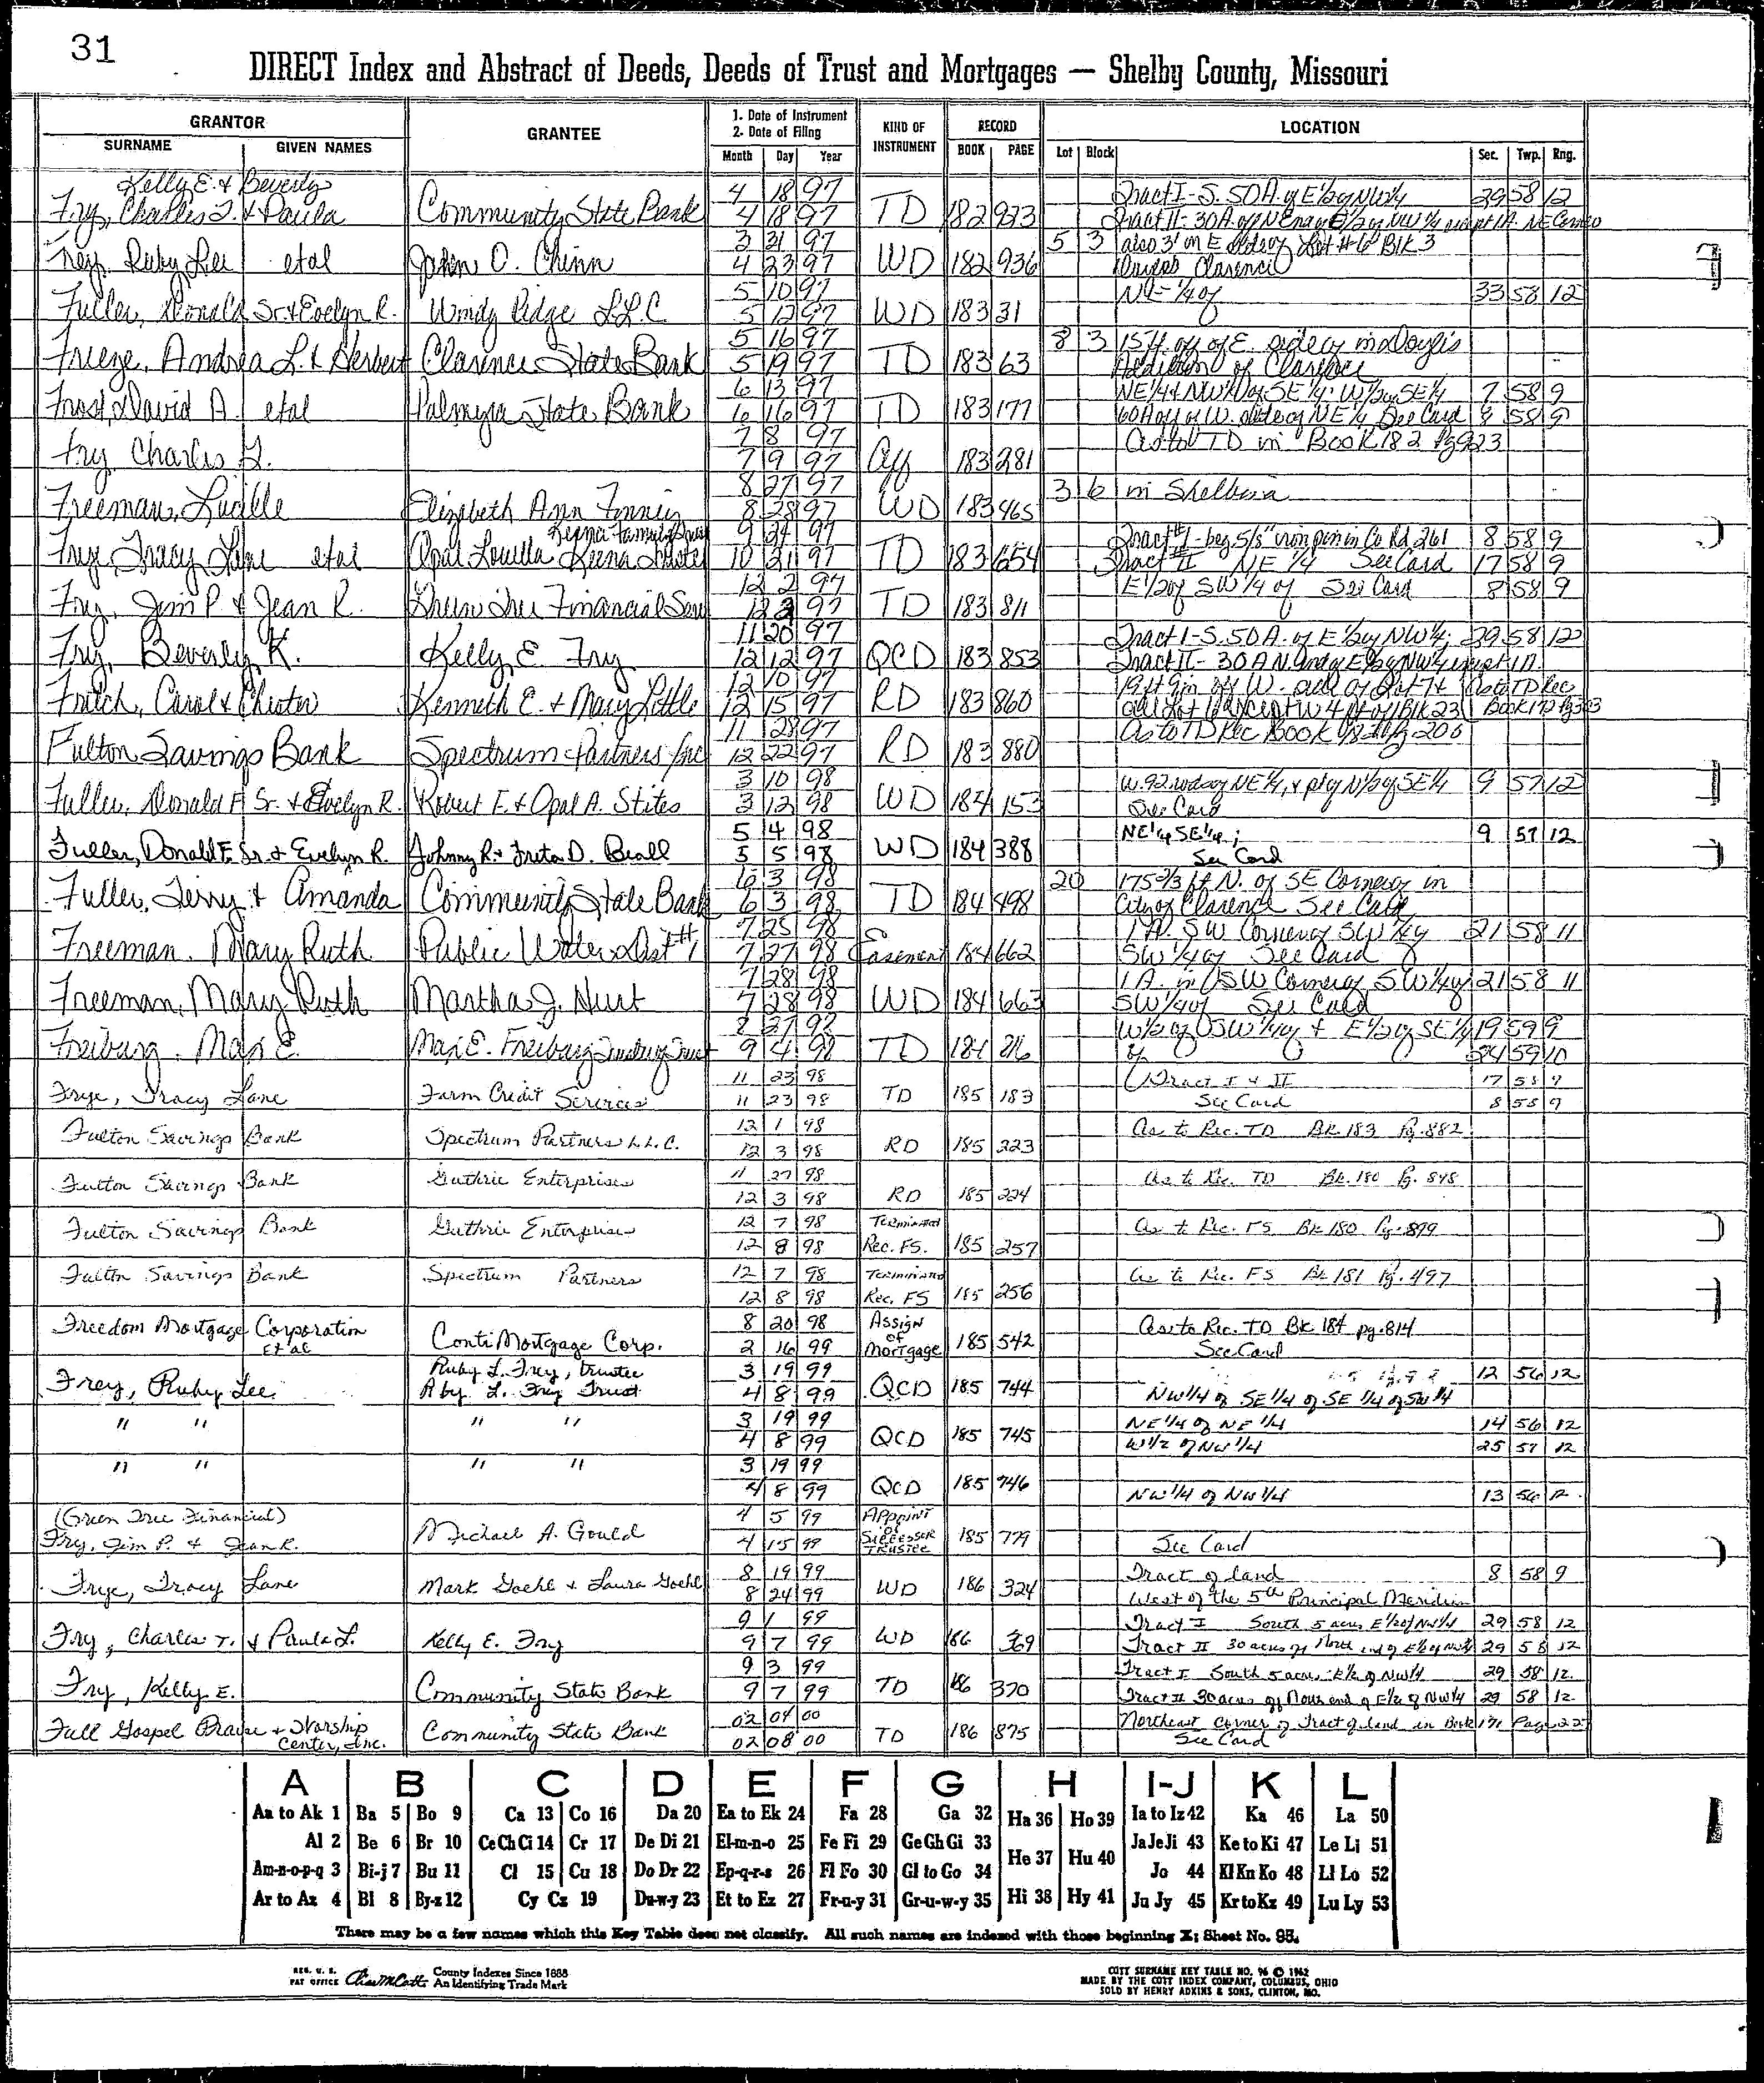 31
DIRECT Index and Abstract of Deeds, Deeds of Trust and Mortgages — Shelby County, Missouri
GRANTOR
SURNAME GIVEN NAMES
GRANTEE
1. Date of Instrument
2. Date of Filing
Month Day Year
KIND OF INSTRUMENT
RECORD
BOOK PAGE
LOCATION
Lot Block Sec. Twp. Rng.
Kelly E. & Beverly 4 18 97 Tract I - S. 50 A. of E 1/2 of NW 1/4 29 58 12
Fry, Charles T. & Paula Community State Bank 4 18 97 TD 182 923 Tract II - 30 A. of N End of E 1/2 of NW 1/4 except 1A. NE Corner
3 31 97 5 3 also 3' on E side of Lot #6 Blk 3
Frey, Ruby Lee etal John O. Chinn 4 23 97 WD 182 936 Clarence
5 10 97 NE 1/4 of 33 58 12
Fuller, Donald Sr. & Evelyn R. Windy Ridge L.L.C. 5 12 97 WD 183 31
5 16 97 8 3 15 ft. off of E. side of in Doyle's
Freeze, Andrea L. & Herbert Clarence State Bank 5 19 97 TD 183 63 Addition of Clarence
6 13 97 NE 1/4 & NW 1/4 of SE 1/4; W 1/2 of SE 1/4 7 58 9
Frost, David A. etal Palmyra State Bank 6 16 97 TD 183 177 60 A off of W. side of NE 1/4 See Card 8 58 9
7 8 97 As to TD in Book 182 Pg 923
Fry Charles T. 7 9 97 Aff 183 281
8 27 97 3 6 in Shelbina
Freeman, Lucille Elizabeth Ann 8 28 97 WD 183 465
Keena Family 9 24 97 Tract #I - beg 5/8" iron pin in Co Rd 261 8 58 9
Frye, Tracy Lane etal Opal Louella Keena Trustee 10 21 97 TD 183 654 Tract II NE 1/4 See Card 17 58 9
12 2 97 E 1/2 of SW 1/4 of See Card 8 58 9
Fry, Jim P. & Jean R. Green Tree Financial Serv 12 3 97 TD 183 811
11 20 97 Tract I - S. 50 A. of E 1/2 of NW 1/4; 29 58 12
Fry, Beverly K. Kelly E Fry 12 12 97 QCD 183 853 Tract II - 30 A N. end of E 1/2 of NW 1/4 except 1A.
12 10 97 19 ft 9 in off W. side of Lot 7 & As to TD Rec
Fritch, Carol & Chester Kenneth E. & Mary Little 12 15 97 RD 183 860 all Lot except W 4 ft of Blk 23
11 28 97 As to TD Rec Book
Fulton Savings Bank Spectrum Partners Inc 12 22 97 RD 183 880
3 10 98 W. 92 rods of NE 1/4, & pt of N 1/2 of SE 1/4 9 57 12
Fuller, Donald F. Sr. & Evelyn R. Robert E. & Opal A. Stites 3 12 98 WD 184 153 See Card
5 4 98 NE 1/4 SE 1/4; 9 57 12
Fuller, Donald F. Sr. & Evelyn R. Johnny R. & Freta D. Beall 5 5 98 WD 184 388 See Card
6 3 98 20 175 2/3 ft N. of SE Corner of in
Fuller, Terry & Amanda Community State Bank 6 3 98 TD 184 498 City of Clarence See Card
7 25 98 1 A. SW Corner of SW 1/4 of 21 58 11
Freeman, Mary Ruth Public Water Dist #1 7 27 98 Easement 184 662 SW 1/4 of See Card
7 28 98 1 A. in SW Corner of SW 1/4 of 21 58 11
Freeman, Mary Ruth Martha J. Hurt 7 28 98 WD 184 663 SW 1/4 of See Card
8 27 98 W 1/2 of SW 1/4 of & E 1/2 of SE 1/4 19 59 9
Freiburg, Max E. Max E. Freiburg 9 4 98 TD 184 816 of 24 59 10
11 23 98 Tract I & II 17 58 9
Frye, Tracy Lane Farm Credit Services 11 23 98 TD 185 183 See Card 8 58 9
12 1 98 As to Rec. TD Bk 183 Pg. 882
Fulton Savings Bank Spectrum Partners L.L.C. 12 3 98 RD 185 223
11 27 98 As to Rec. TD Bk. 180 Pg. 898
Fulton Savings Bank Guthrie Enterprises 12 3 98 RD 185 224
12 7 98 Terminated As to Rec. FS Bk 180 Pg. 899
Fulton Savings Bank Guthrie Enterprises 12 8 98 Rec. FS. 185 257
12 7 98 Terminated As to Rec. FS Bk 181 Pg. 497
Fulton Savings Bank Spectrum Partners 12 8 98 Rec. FS 185 256
Freedom Mortgage Corporation 8 20 98 Assign As to Rec. TD Bk 184 pg. 814
Et al ContiMortgage Corp. 2 16 99 of Mortgage 185 542 See Card
Ruby L. Frey, trustee 3 19 99 12 56 12
Frey, Ruby Lee Ruby L. Frey Trust 4 8 99 QCD 185 744 NW 1/4 of SE 1/4 of SE 1/4 of SW 1/4
" " " " 3 19 99 NE 1/4 of NE 1/4 14 56 12
4 8 99 QCD 185 745 W 1/2 of NW 1/4 25 57 12
" " " " 3 19 99
4 8 99 QCD 185 746 NW 1/4 of NW 1/4 13 56 12
(Green Tree Financial) 4 5 99 Appoint
Fry, Jim P. & Jean R. Michael A. Gould 4 15 99 of Successor Trustee 185 779 See Card
8 19 99 Tract of land 8 58 9
Frye, Tracy Lane Mark Goehl & Laura Goehl 8 24 99 WD 186 324 West of the 5th Principal Meridian
9 1 99 Tract I South 5 acres E 1/2 of NW 1/4 29 58 12
Fry, Charles T. & Paula L. Kelly E. Fry 9 7 99 WD 186 369 Tract II 30 acres of North end of E 1/2 of NW 1/4 29 58 12
9 3 99 Tract I South 5 acres E 1/2 of NW 1/4 29 58 12
Fry, Kelly E. Community State Bank 9 7 99 TD 186 370 Tract II 30 acres of North end of E 1/2 of NW 1/4 29 58 12
02 04 00 Northeast corner of Tract of land in Book 171 Page 225
Full Gospel Praise & Worship Center, Inc. Community State Bank 02 08 00 TD 186 875 See Card
A B C D E F G H I-J K L
Aa to Ak 1 Ba 5 Bo 9 Ca 13 Co 16 Da 20 Ea to Ek 24 Fa 28 Ga 32 Ha 36 Ho 39 Ia to Iz 42 Ka 46 La 50
Al 2 Be 6 Br 10 Ce Ch Ci 14 Cr 17 De Di 21 El-m-n-o 25 Fe Fi 29 Ge Gh Gi 33 He 37 Hu 40 Ja Je Ji 43 Ke to Ki 47 Le Li 51
Am-n-o-p-q 3 Bi-j 7 Bu 11 Cl 15 Cu 18 Do Dr 22 Ep-q-r-s 26 Fl Fo 30 Gl to Go 34 Jo 44 Kl Kn Ko 48 Ll Lo 52
Ar to Az 4 Bl 8 By-z 12 Cy Cz 19 Du-w-y 23 Et to Ez 27 Fr-u-y 31 Gr-u-w-y 35 Hi 38 Hy 41 Ju Jy 45 Kr to Kz 49 Lu Ly 53
There may be a few names which this Key Table does not classify. All such names are indexed with those beginning X; Sheet No. 95.
REG. U. S. PAT OFFICE County Indexes Since 1888 An Identifying Trade Mark
COTT SURNAME KEY TABLE NO. 96 © 1962
MADE BY THE COTT INDEX COMPANY, COLUMBUS, OHIO
SOLD BY HENRY ADKINS & SONS, CLINTON, MO.